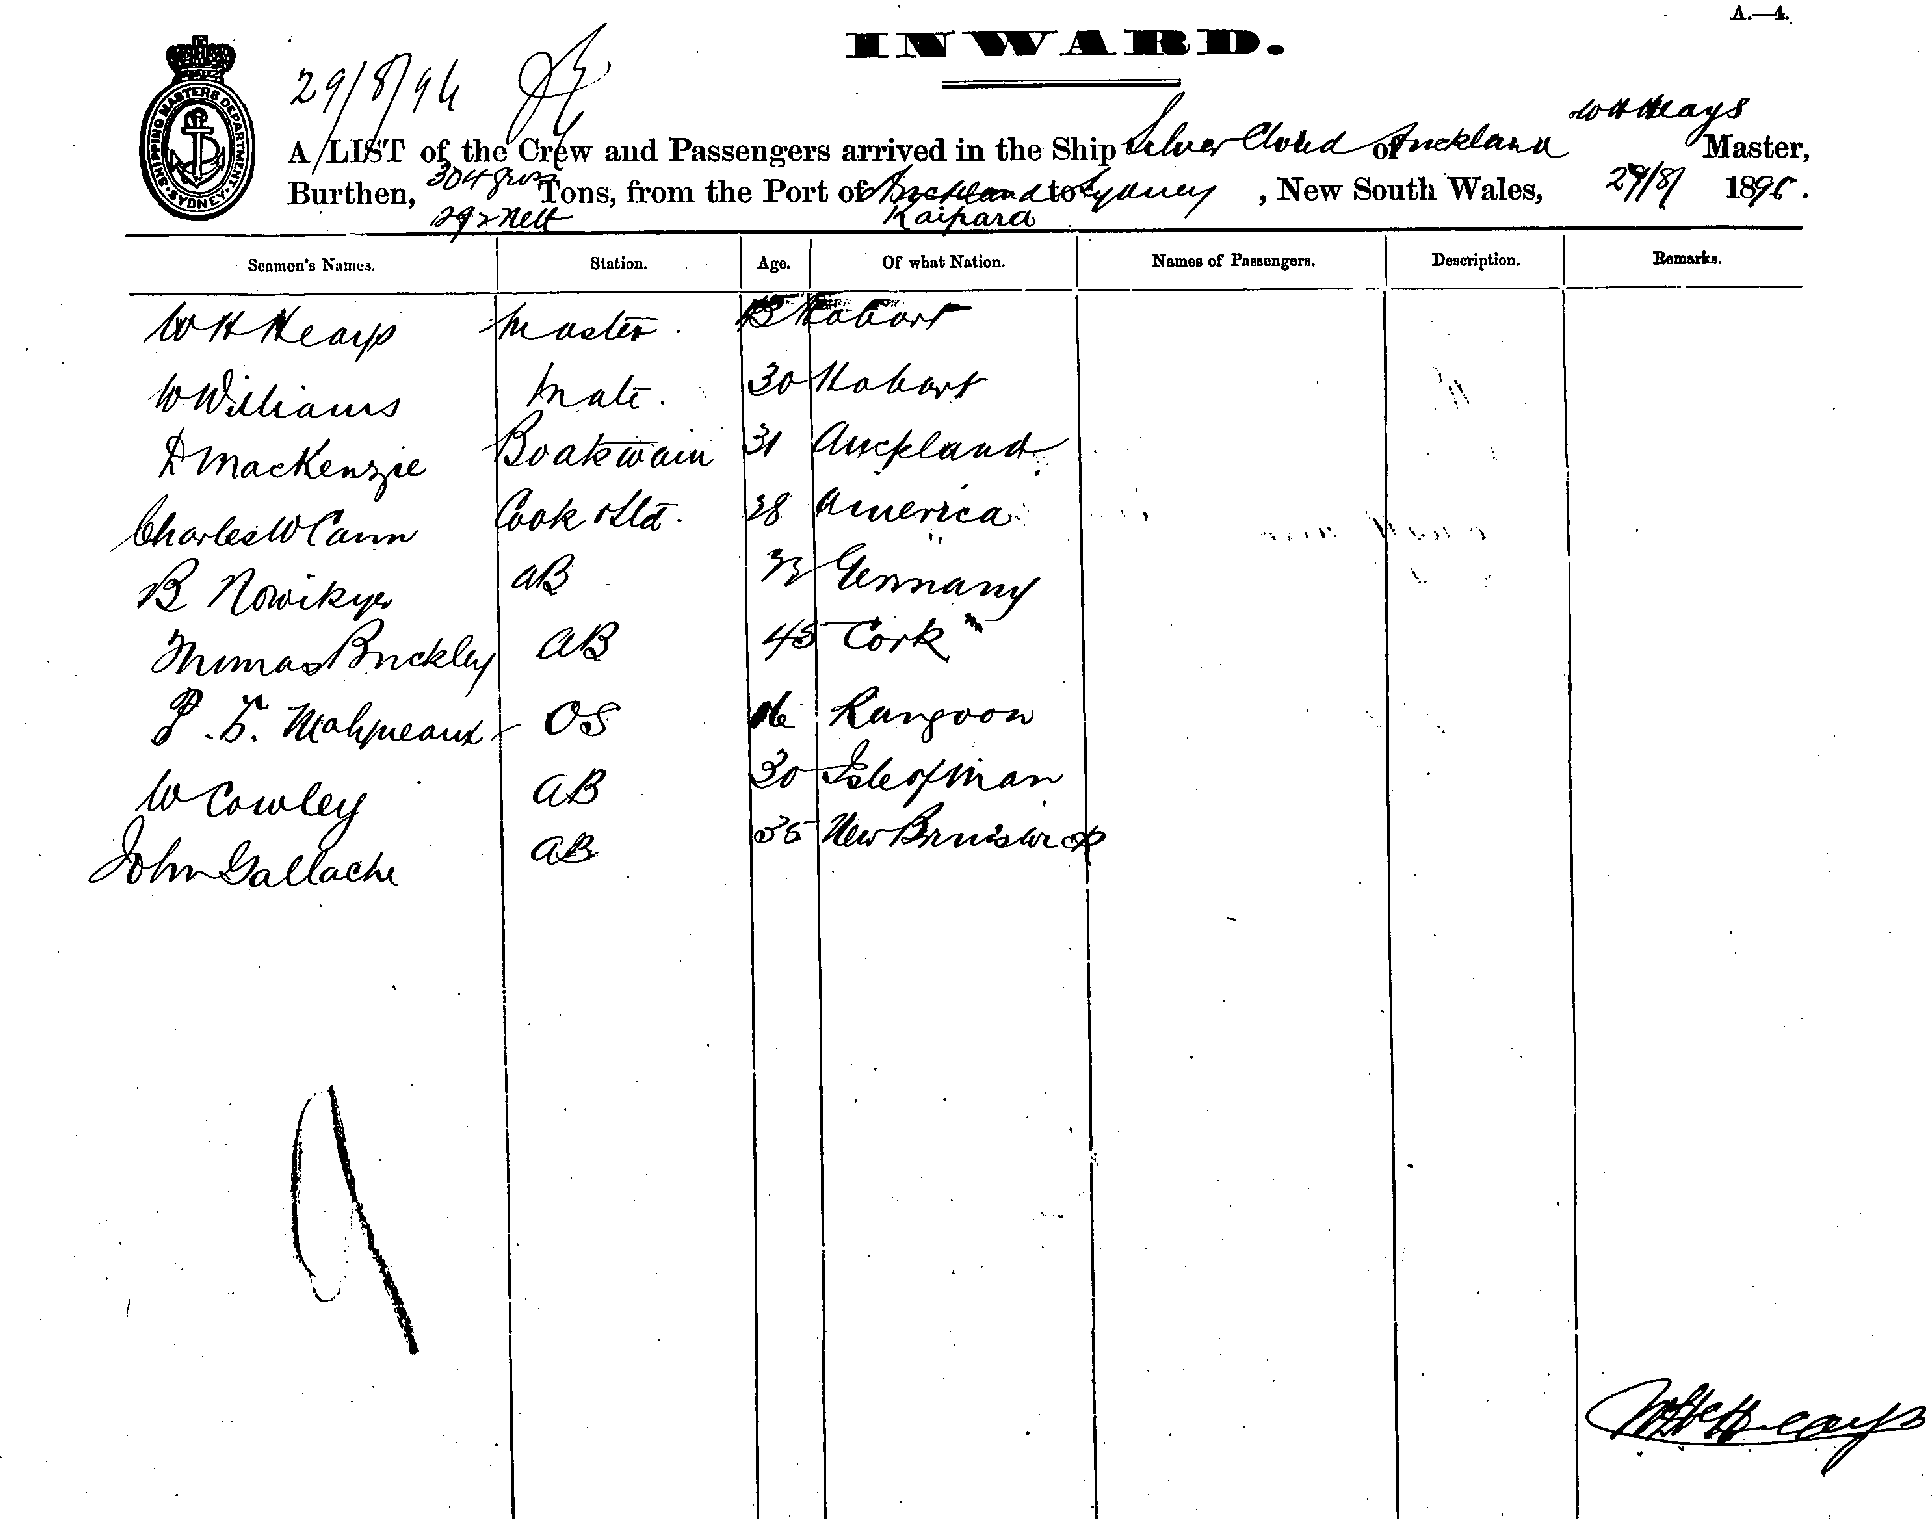 A.—4.
INWARD.
SHIPPING MASTERS DEPARTMENT SYDNEY
29/8/96
W H Heays
A LIST of the Crew and Passengers arrived in the Ship Silver Cloud of Auckland Master,
Burthen, 304 gross Tons, from the Port of Auckland to Sydney, New South Wales, 29/8/ 1896.
292 Nett Kaipara
Seamen's Names. Station. Age. Of what Nation. Names of Passengers. Description. Remarks.
W H Heays Master. Hobart
W Williams Mate. 30 Hobart
D MacKenzie Boatswain 31 Auckland
Charles W Cann Cook & Std. 28 America
B AB 33 Germany
Thomas Buckley AB 45 Cork
OS 16 Rangoon
W Cowley AB 30 Isle of Man
John Gallache AB 35 New Brunswick
W H Heays